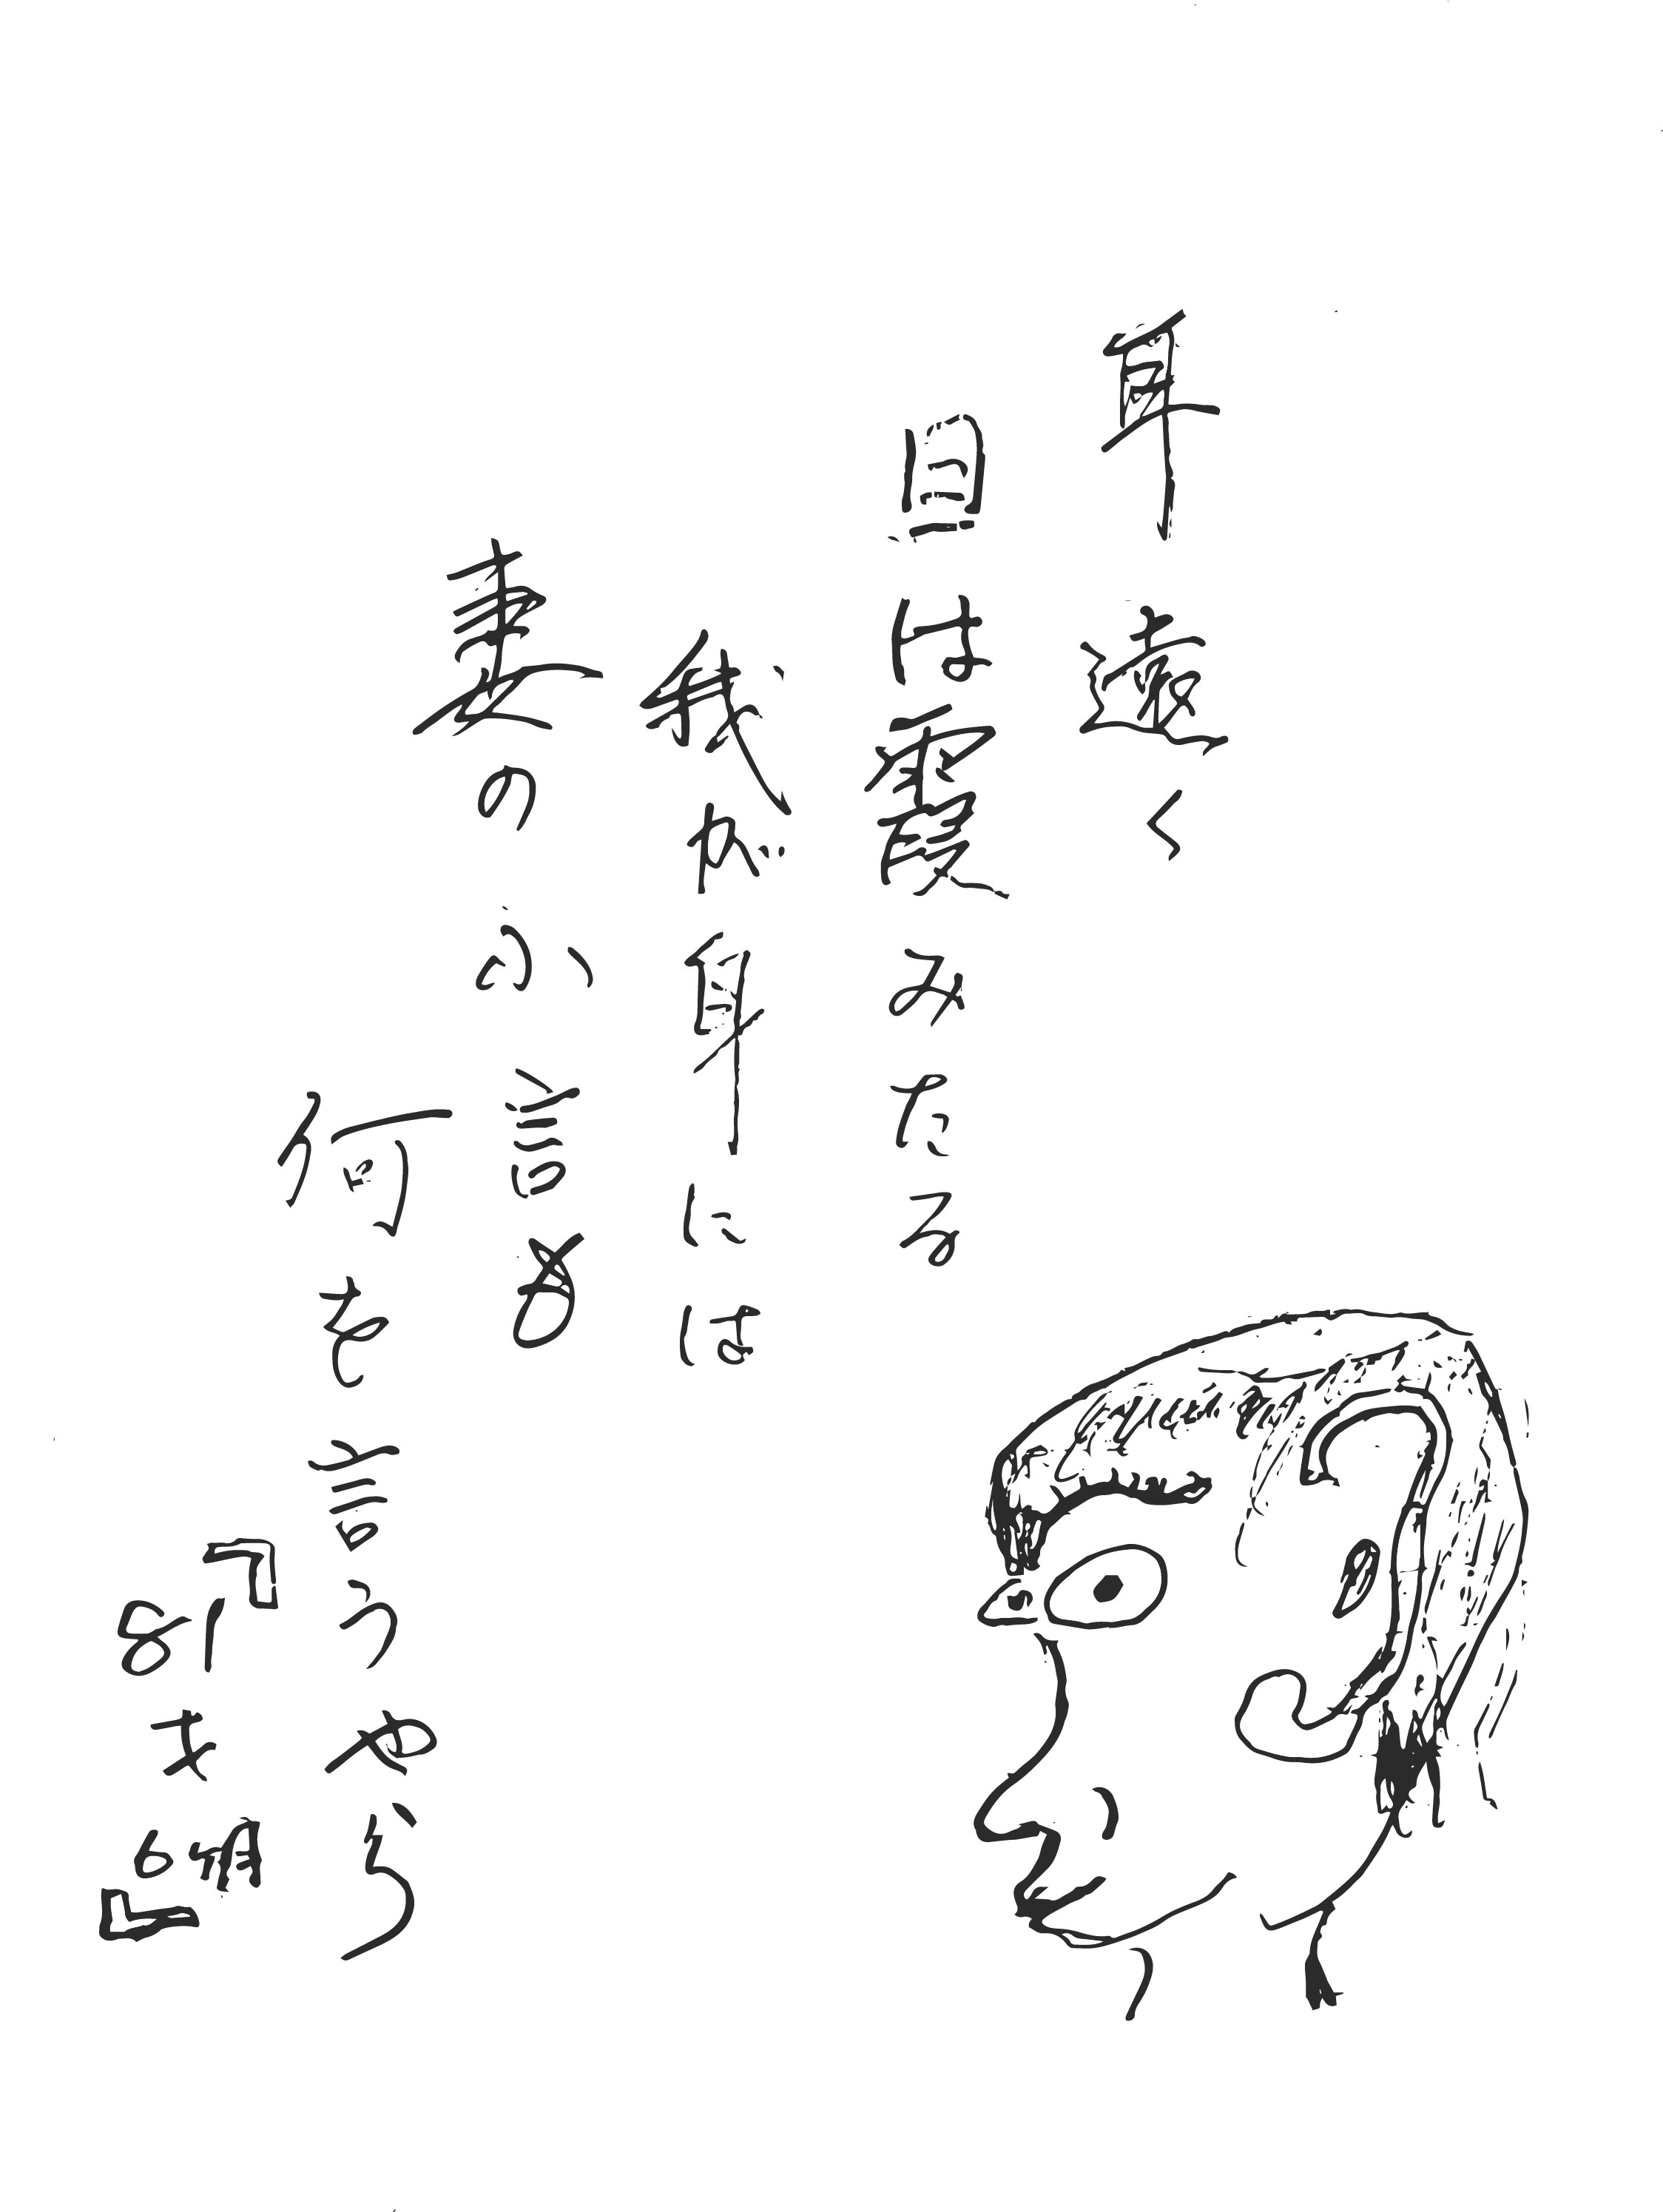 耳遠く
目は霞みたる
我が耳には
妻の小言も
何を言うやら
「81才6ケ月」